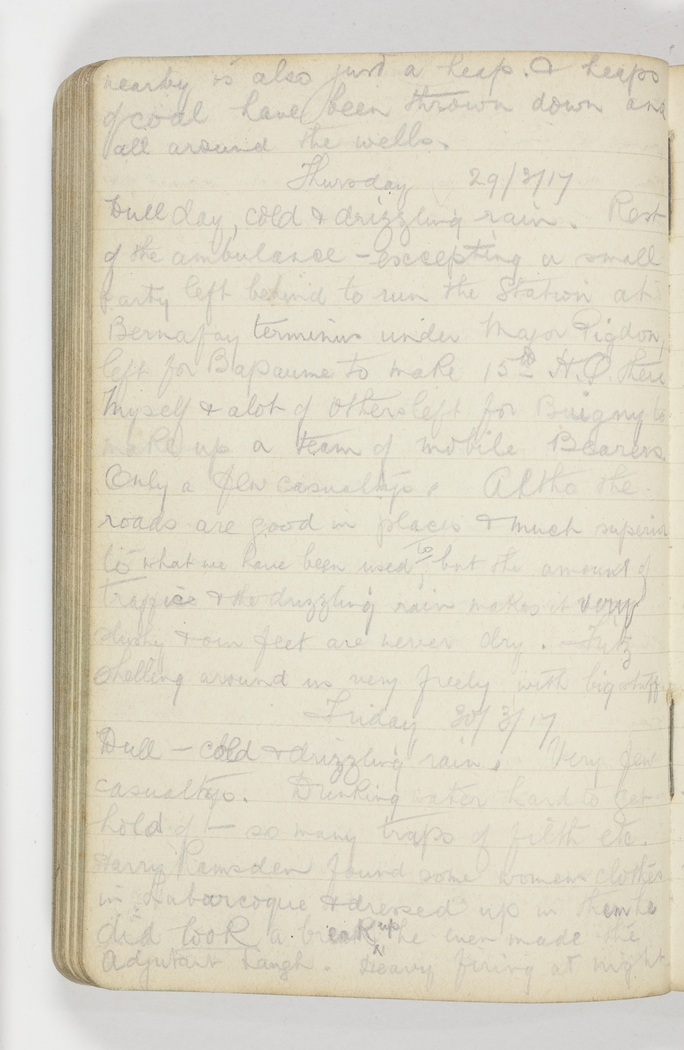 nearby is also just a heap. & heaps
of coal have been thrown down and
all around the wells.
Thursday 29/3/17
Dull day, cold & drizzling rain. Rest
of the ambulance - excepting a small
party left behind to run the Station at
Bernafay terminus under Major Pigdon,
left for Bapaume to make 15th H.Q. there
Myself & alot of others left for Buigny to
make up a team of mobile Bearers.
Only a few casualtys. Altho the
roads are good in places & much superior
to what we have been used to, but the amount of
traffic & the drizzling rain makes it very
slushy & our feet are never dry. - Fritz
shelling around us very freely with big stuff.
Friday 30/3/17
Dull - cold & drizzling rain. Very few
casualtys. Drinking water hard to get
hold of - so many traps of filth etc.
Harry Ramsden found some womens clothes
in Labarcoque & dressed up in them he
did look a break up he even made the
Adjutant laugh. Heavy firing at night.